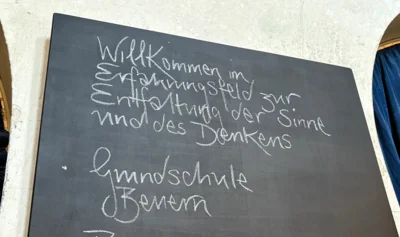 Willkommen im
Erfahrungsfeld zur
Entfaltung der Sinne
und des Denkens
Grundschule
Bevern